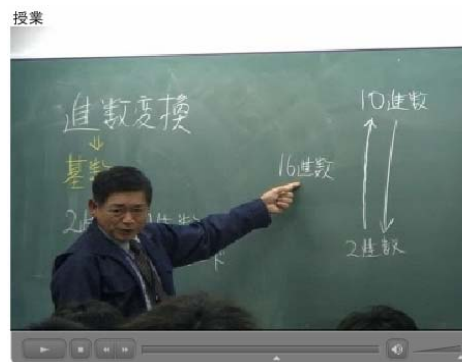 授業
進数変換
⇓
基数
10進数
16進数
2進数